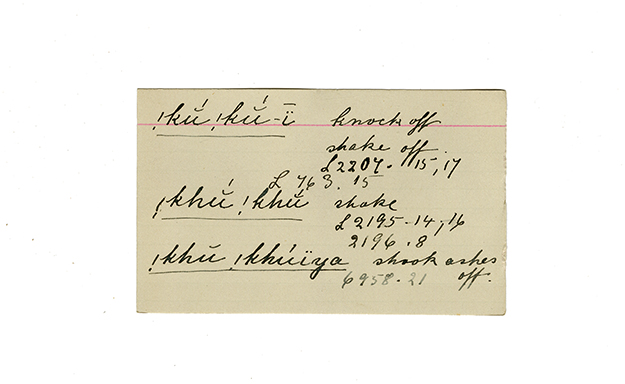 !kú !kú-ï knock off
shake off.
L2207-15,17
L 763.15
!khú !khú shake
L2195-14,16
2196.8
!khú !khúïya shook ashes
6958-21 off.